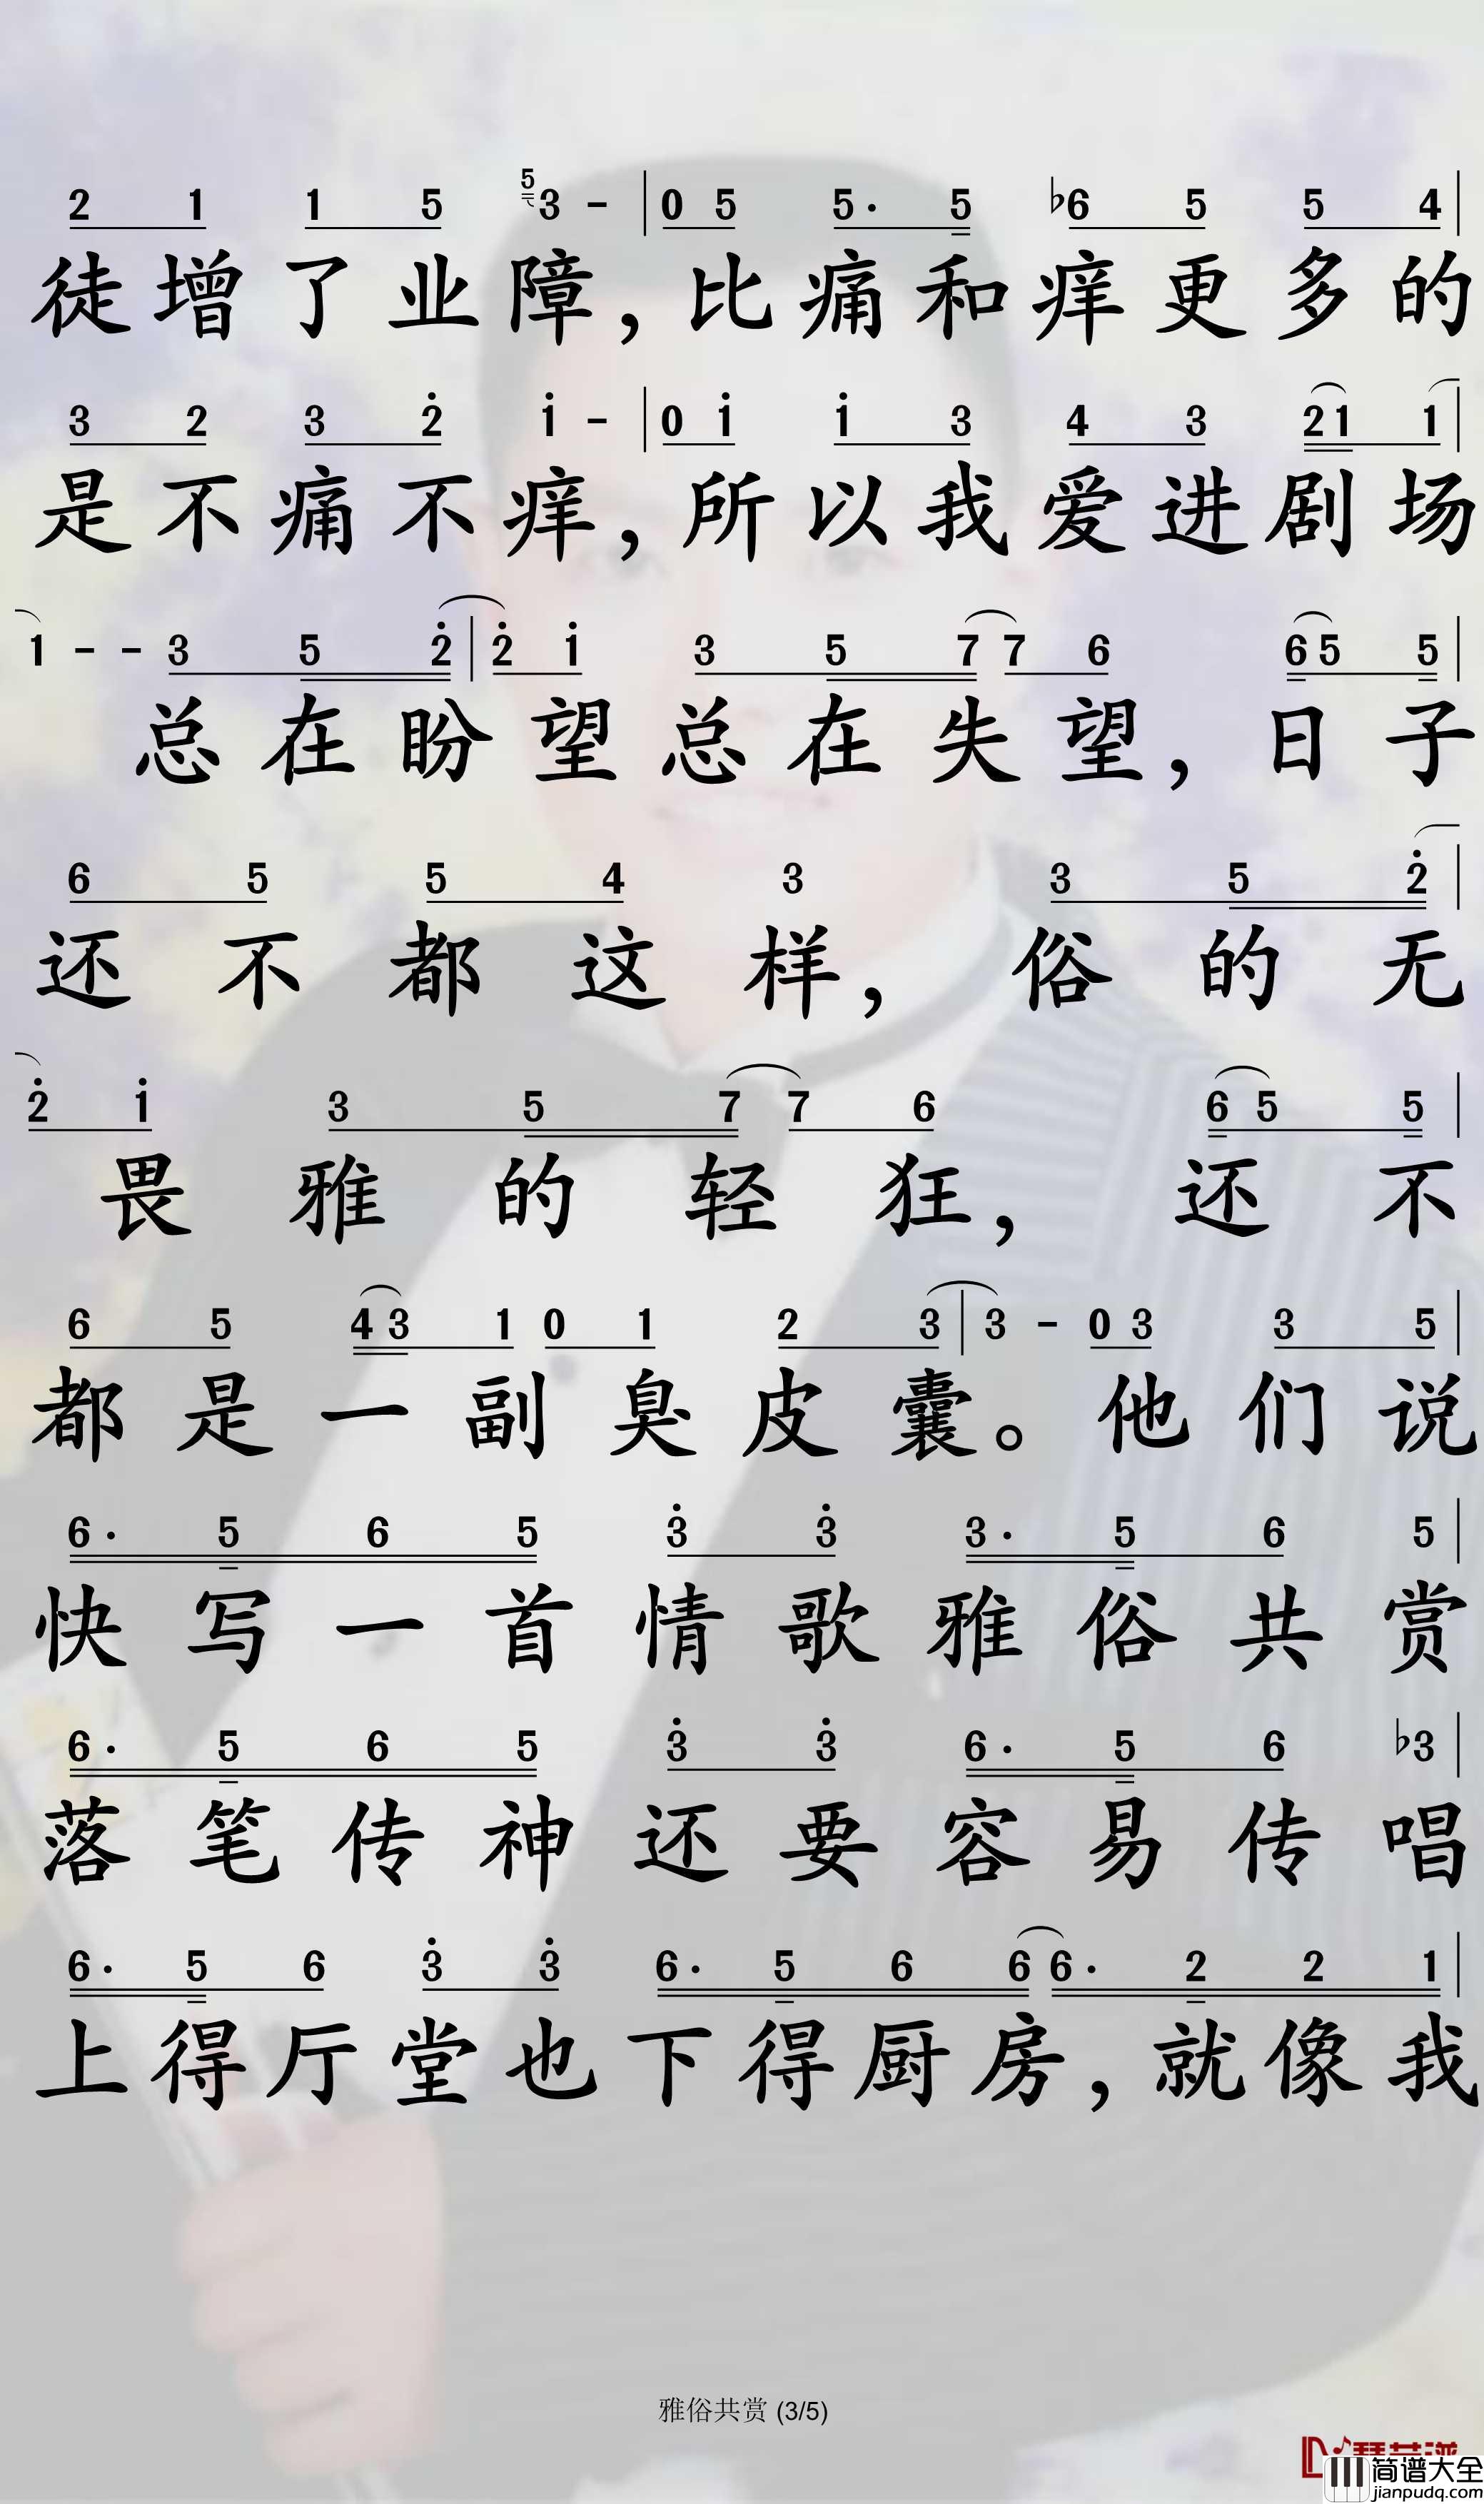 2 1 1 5 5 3 - | 0 5 5· 5 ♭6 5 5 4 |
徒增了业障，比痛和痒更多的
3 2 3 2̇ 1̇ - | 0 1̇ 1̇ 3 4 3 2 1 1 |
是不痛不痒，所以我爱进剧场
1 - - 3 5 2̇ | 2̇ 1̇ 3 5 7 7 6 6 5 5 |
总在盼望总在失望，日子
6 5 5 4 3 3 5 2̇ |
还不都这样，俗的无
2̇ 1̇ 3 5 7 7 6 6 5 5 |
畏雅的轻狂，还不
6 5 4 3 1 0 1 2 3 | 3 - 0 3 3 5 |
都是一副臭皮囊。他们说
6· 5 6 5 3̇ 3̇ 3· 5 6 5 |
快写一首情歌雅俗共赏
6· 5 6 5 3̇ 3̇ 6· 5 6 ♭3 |
落笔传神还要容易传唱
6· 5 6 3̇ 3̇ 6· 5 6 6 6· 2 2 1 |
上得厅堂也下得厨房，就像我
雅俗共赏 (3/5)
简谱大全
jianpudq.com